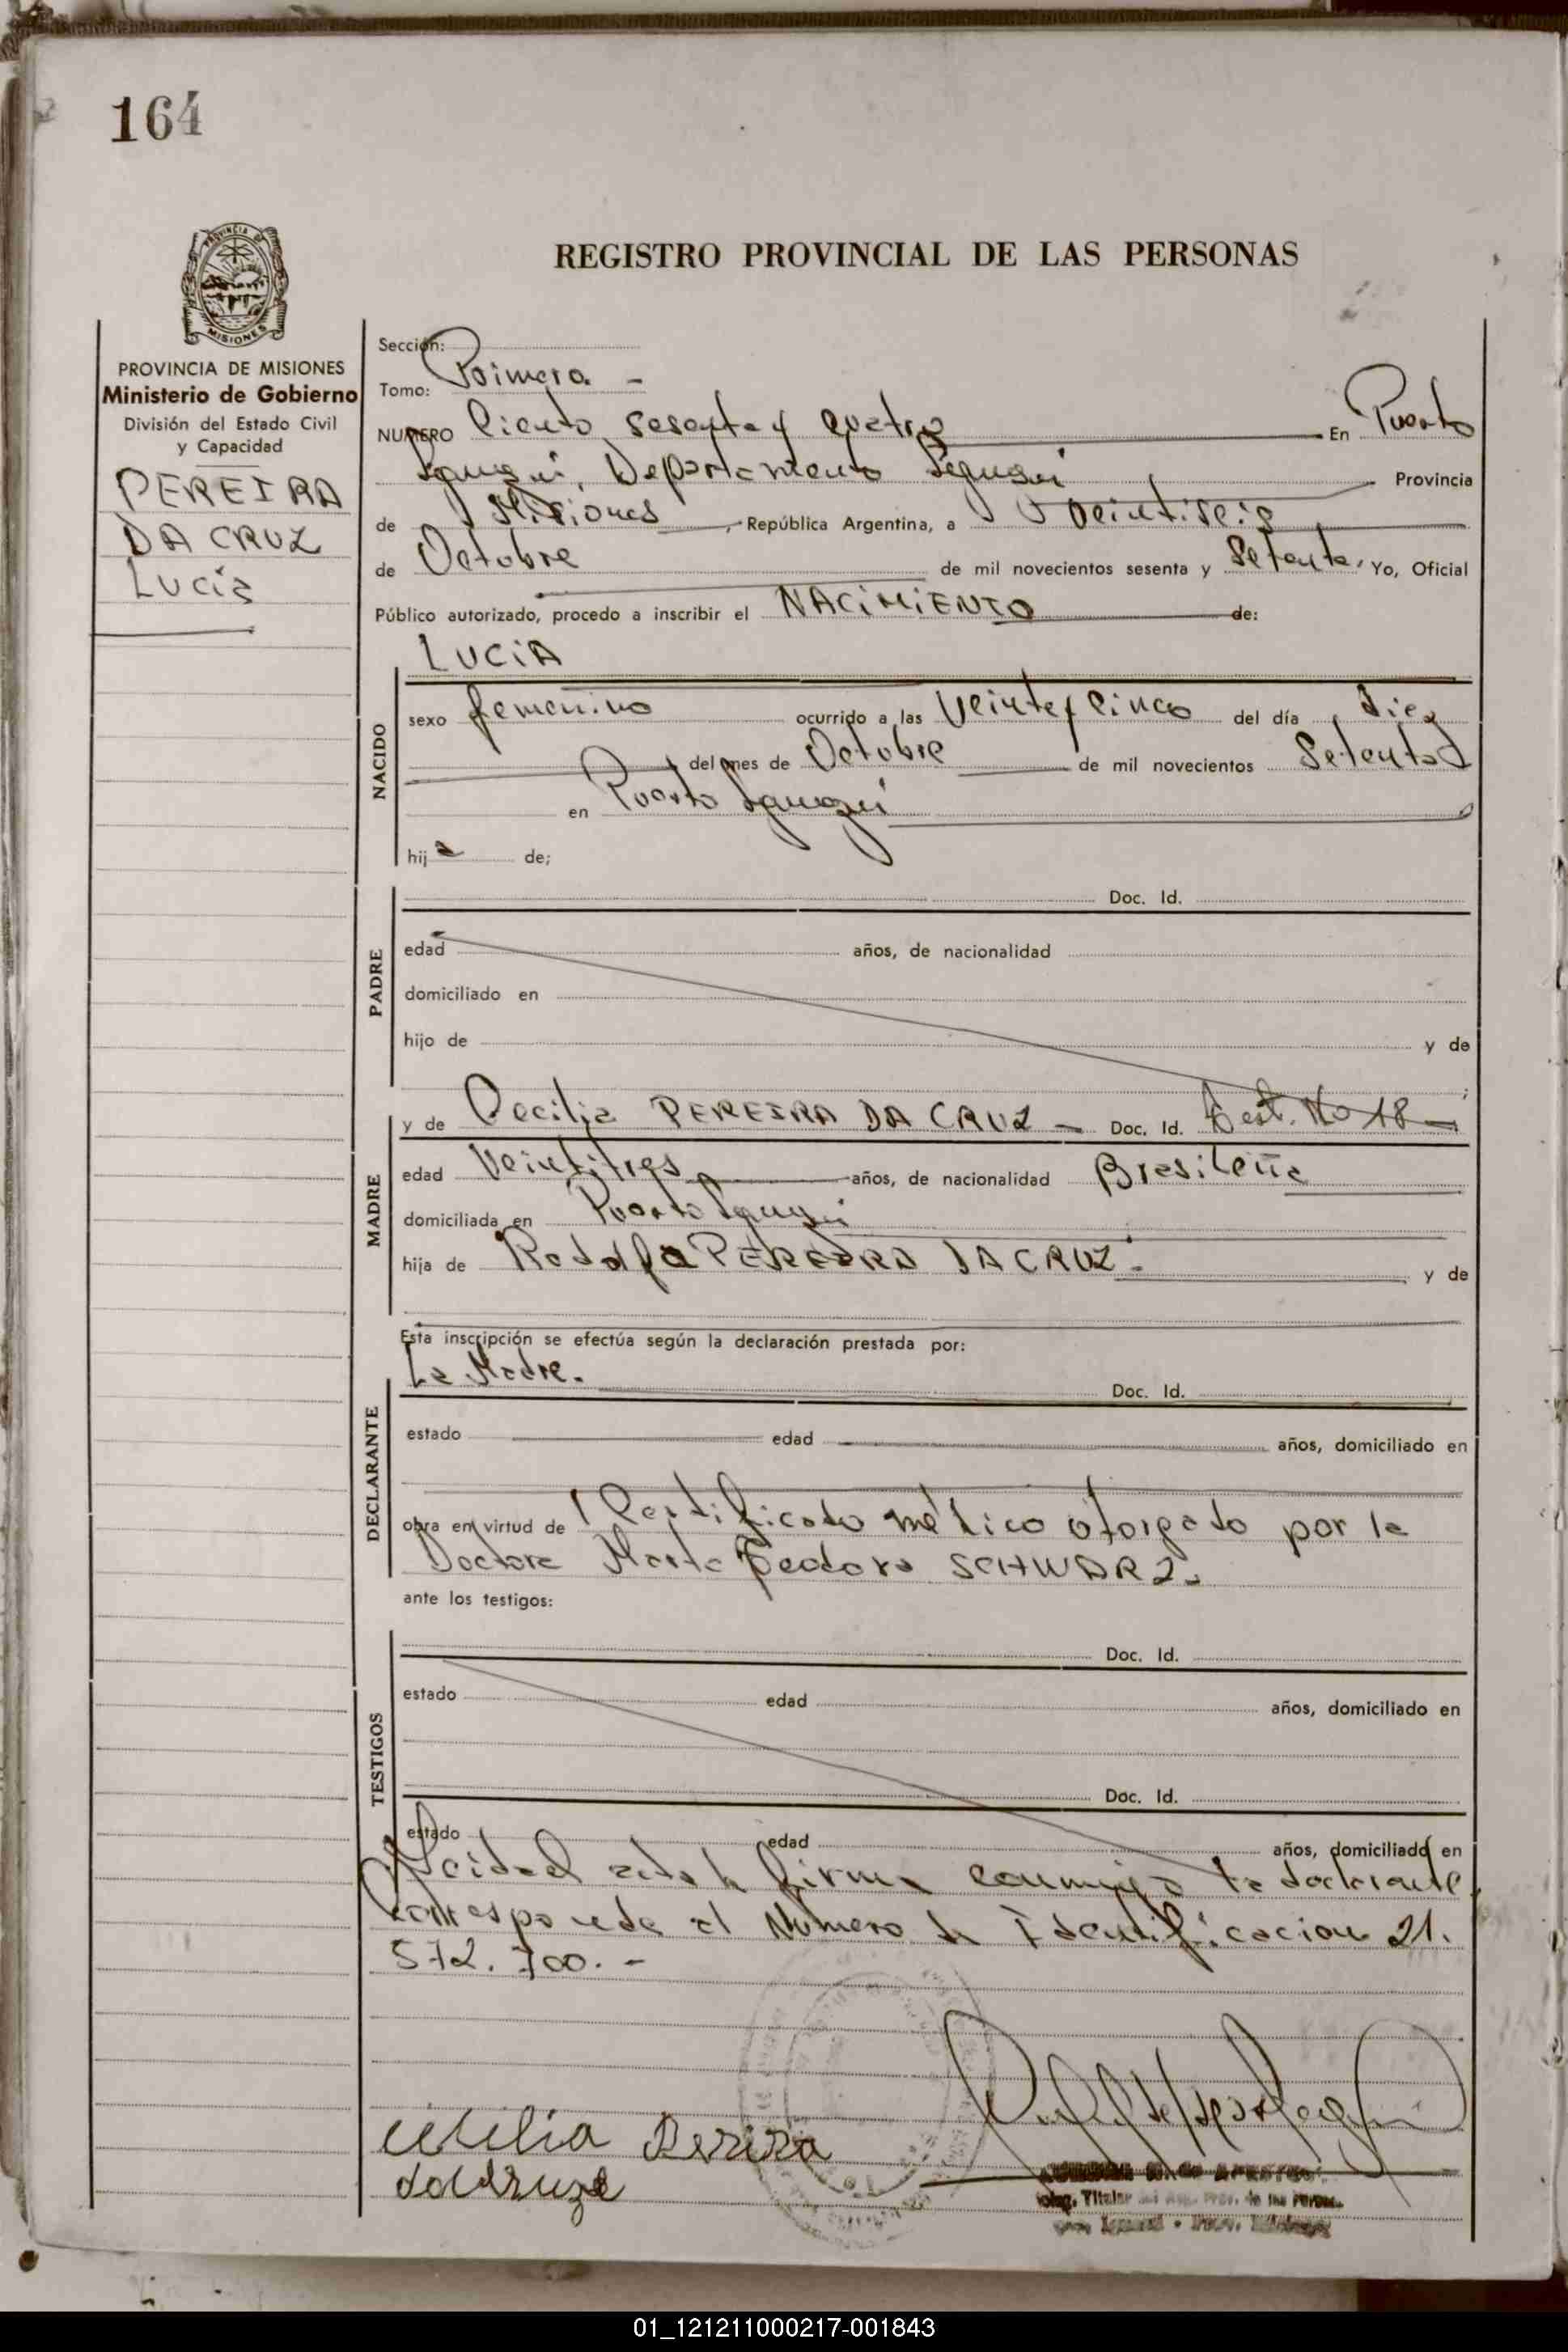 164
PROVINCIA DE
MISIONES
REGISTRO PROVINCIAL DE LAS PERSONAS
PROVINCIA DE MISIONES
Ministerio de Gobierno
División del Estado Civil
y Capacidad
PEREIRA
DA CRUZ
Lucía
Sección:
Tomo: Primero -
NUMERO Ciento sesenta y cuatro En Puerto
Iguazú, Departamento Iguazú Provincia
de Misiones, República Argentina, a veintiseis
de Octubre de mil novecientos sesenta y Setenta. Yo, Oficial
Público autorizado, procedo a inscribir el NACIMIENTO de:
LUCIA
NACIDO
sexo femenino ocurrido a las Veinte y Cinco del día diez
del mes de Octubre de mil novecientos Setenta
en Puerto Iguazú
hija de;
PADRE
Doc. Id.
edad años, de nacionalidad
domiciliado en
hijo de y de
;
MADRE
y de Cecilia PEREIRA DA CRUZ - Doc. Id. Cert. No 18
edad Veintitres años, de nacionalidad Brasileña
domiciliada en Puerto Iguazú
hija de Rodolfo PEREIRA DA CRUZ. y de
Esta inscripción se efectúa según la declaración prestada por:
DECLARANTE
La Madre. Doc. Id.
estado edad años, domiciliado en
obra en virtud de Certificado médico otorgado por la
Doctora Marta Teodora SCHWARZ.
ante los testigos:
TESTIGOS
Doc. Id.
estado edad años, domiciliado en
Doc. Id.
estado edad años, domiciliado en
Leída el acta la firma conmigo la declarante
corresponde al Numero de Identificacion 21.
572.700.-
Cecilia Pereira
da Cruz
01_121211000217-001843